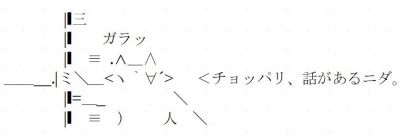 |▌三
|▌ ガラッ
|▌ ≡ .∧＿∧
＿＿＿.|ミ＼＿<ヽ｀∀´> ＜チョッパリ、話があるニダ。
|▌=＿_ ＼
|▌ ≡ ） 人 ＼